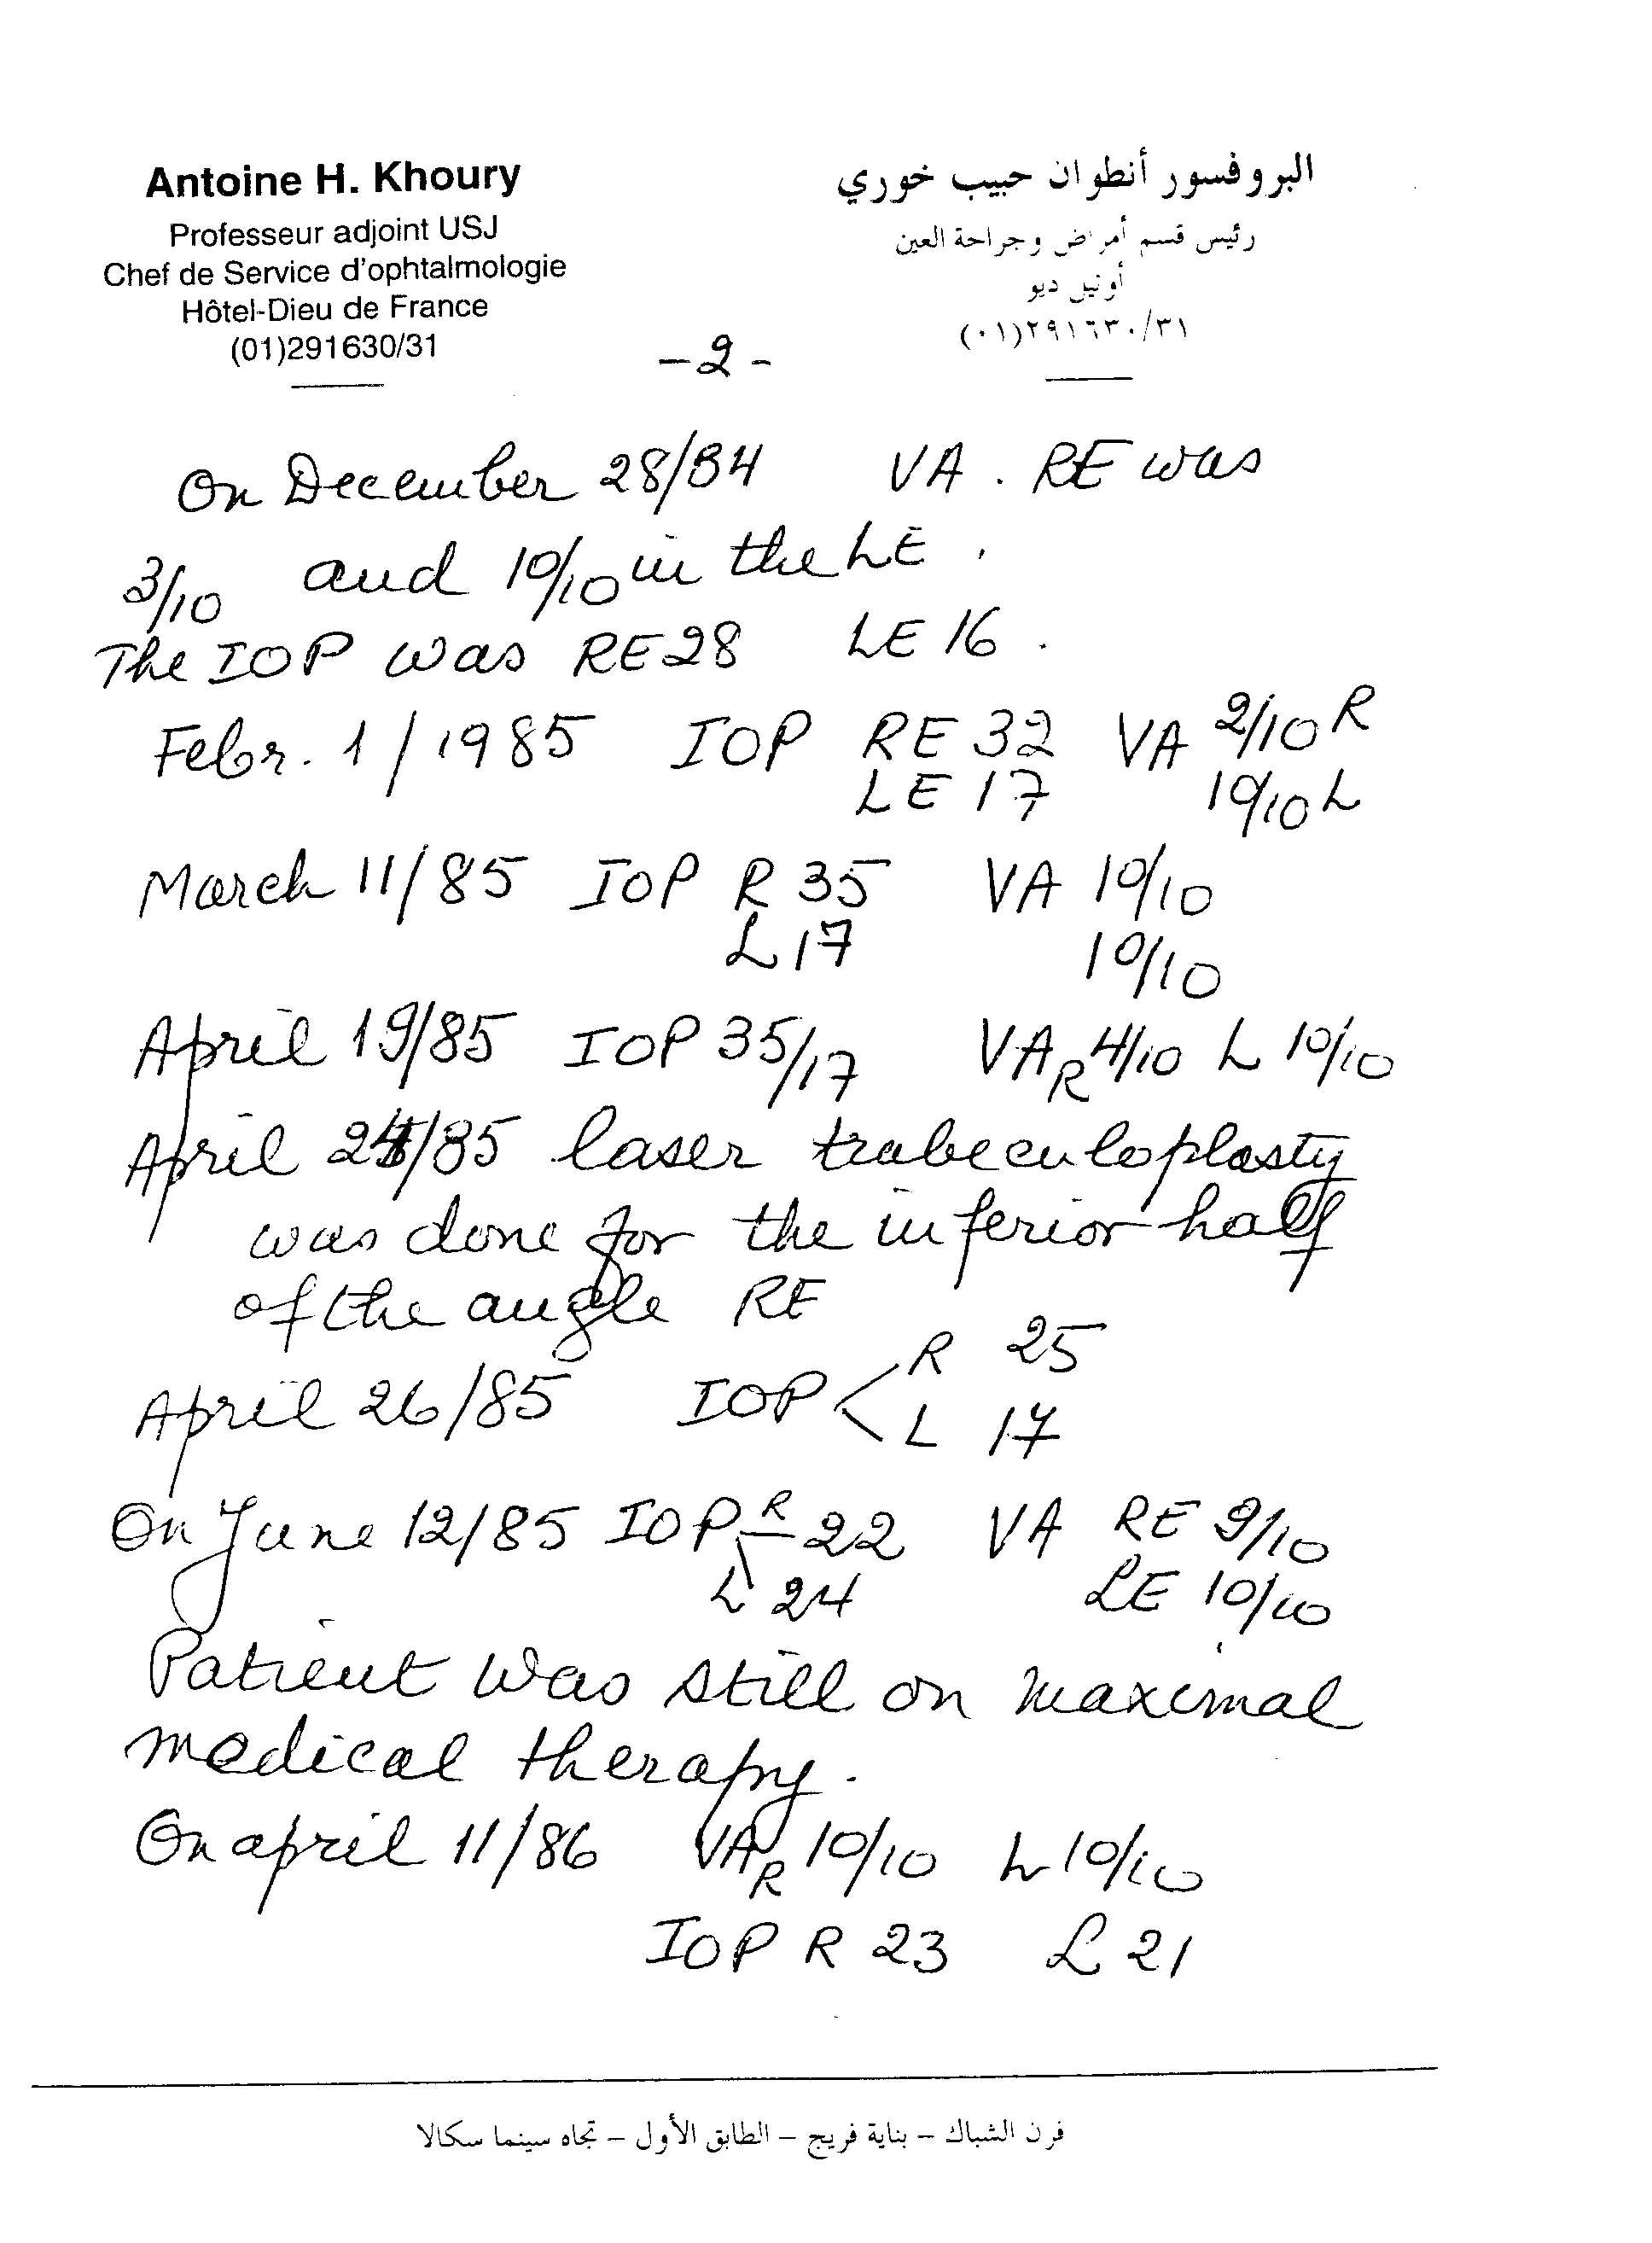 Antoine H. Khoury
Professeur adjoint USJ
Chef de Service d'ophtalmologie
Hôtel-Dieu de France
(01)291630/31
البروفسور أنطوان حبيب خوري
رئيس قسم أمراض وجراحة العين
أوتيل ديو
(٠١)٢٩١٦٣٠/٣١
- 2 -
On December 28/84 VA. RE was
3/10 and 10/10 in the LE.
The IOP was RE 28 LE 16.
Febr. 1/1985 IOP RE 32 VA 2/10 R
LE 17 10/10 L
March 11/85 IOP R 35 VA 10/10
L 17 10/10
April 19/85 IOP 35/17 VA R 4/10 L 10/10
April /85 laser trabeculoplasty
was done for the inferior half
of the angle RE
April 26/85 IOP < R 25
L 17
On June 12/85 IOP R 22 VA RE 9/10
L 24 LE 10/10
Patient was still on maximal
medical therapy.
On april 11/86 VA R 10/10 L 10/10
IOP R 23 L 21
فرن الشباك – بناية فريج – الطابق الأول – تجاه سينما سكالا